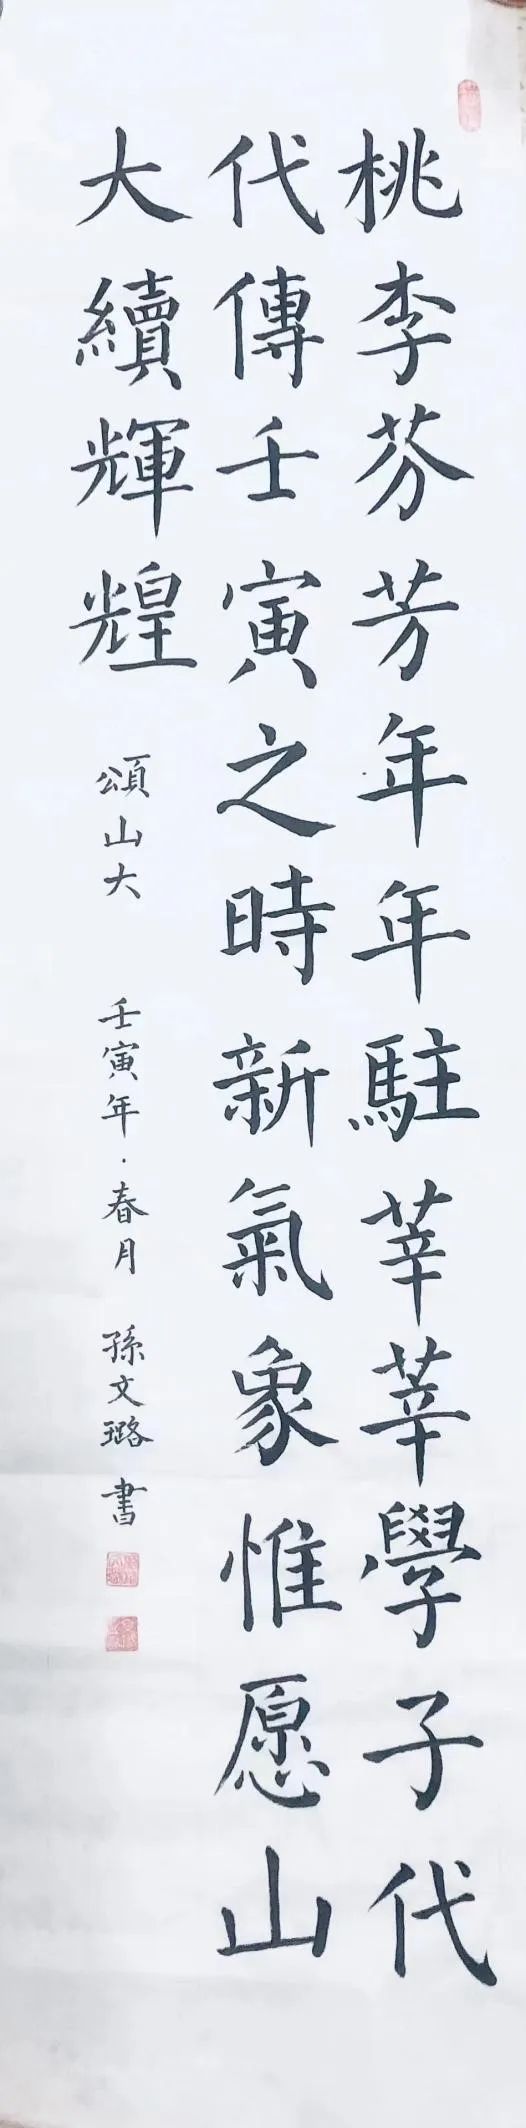 桃李芬芳年年駐莘莘學子代
代傳壬寅之時新氣象惟愿山
大續輝煌
頌山大 壬寅年·春月 孫文璐書